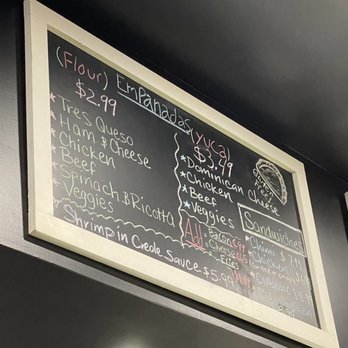 (Flour) Empanadas (Yuca)
$2.99
$3.49
*Tres Queso
*Ham & Cheese
*Chicken
*Beef
*Spinach & Ricotta
*Veggies
*Shrimp in Creole Sauce $5.99
*Dominican Cheese
*Chicken
*Beef
*Veggies
Add
Bacon
Cheese
Fries
Sandwiches
*Chimi $7.
*Chicken
*Chicken